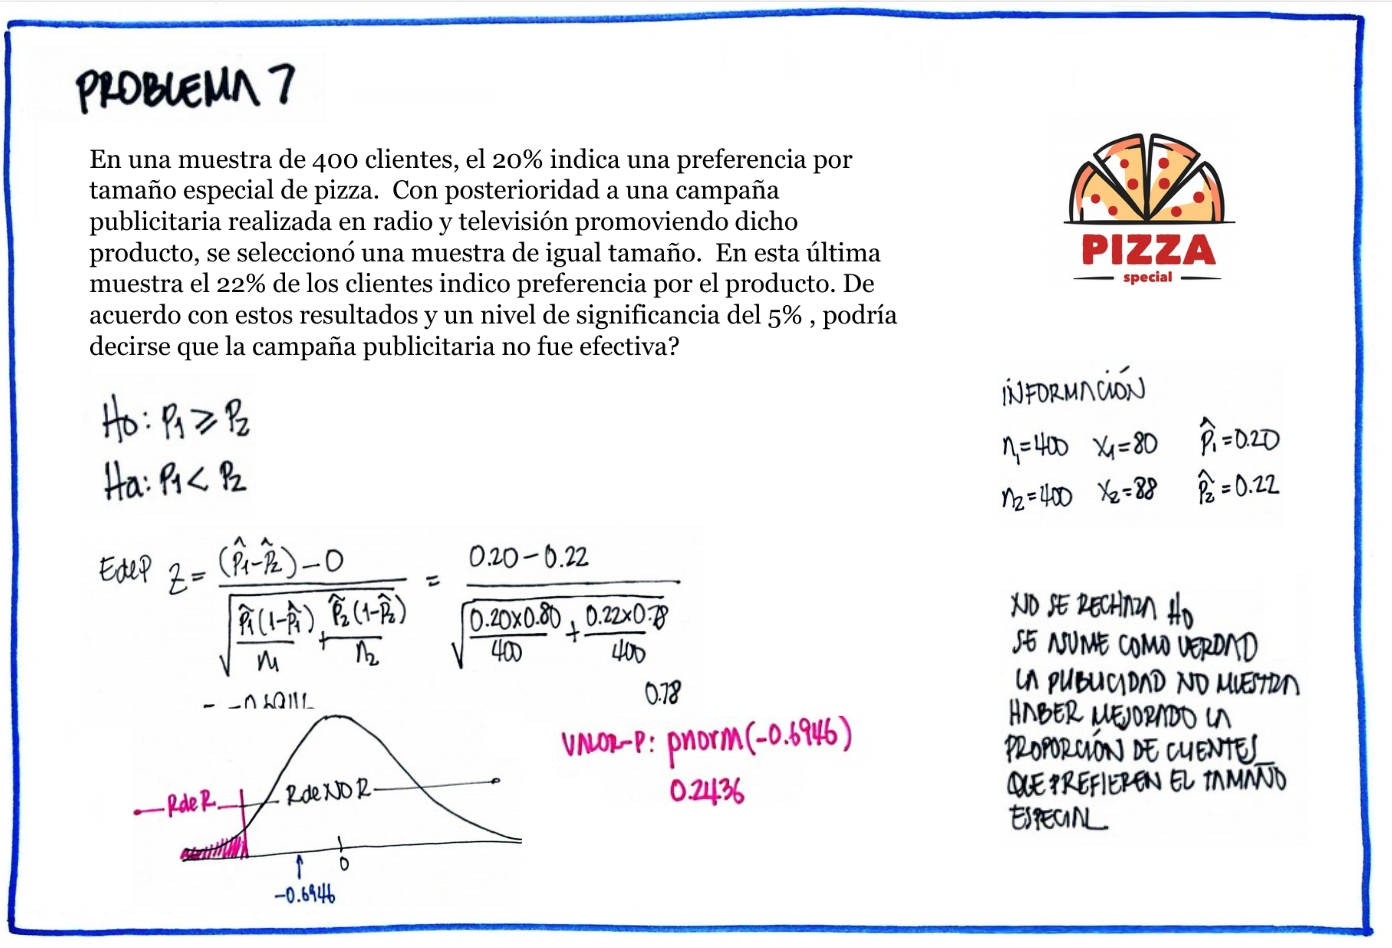 PROBLEMA 7
En una muestra de 400 clientes, el 20% indica una preferencia por
tamaño especial de pizza. Con posterioridad a una campaña
publicitaria realizada en radio y televisión promoviendo dicho
producto, se seleccionó una muestra de igual tamaño. En esta última
muestra el 22% de los clientes indico preferencia por el producto. De
acuerdo con estos resultados y un nivel de significancia del 5% , podría
decirse que la campaña publicitaria no fue efectiva?
PIZZA
special
Ho: P₁ ≥ P₂
Ha: P₁ < P₂
INFORMACIÓN
n₁=400 x₁=80 p̂₁=0.20
n₂=400 x₂=88 p̂₂=0.22
EdeP z = (p̂₁-p̂₂)-0 / √(p̂₁(1-p̂₁)/n₁ + p̂₂(1-p̂₂)/n₂) = 0.20-0.22 / √(0.20x0.80/400 + 0.22x0.78/400)
0.78
VALOR-P: pnorm(-0.6946)
0.2436
RdeR
RdeNOR
0
-0.6946
NO SE RECHAZA Ho
SE ASUME COMO VERDAD
LA PUBLICIDAD NO MUESTRA
HABER MEJORADO LA
PROPORCIÓN DE CLIENTES
QUE PREFIEREN EL TAMAÑO
ESPECIAL